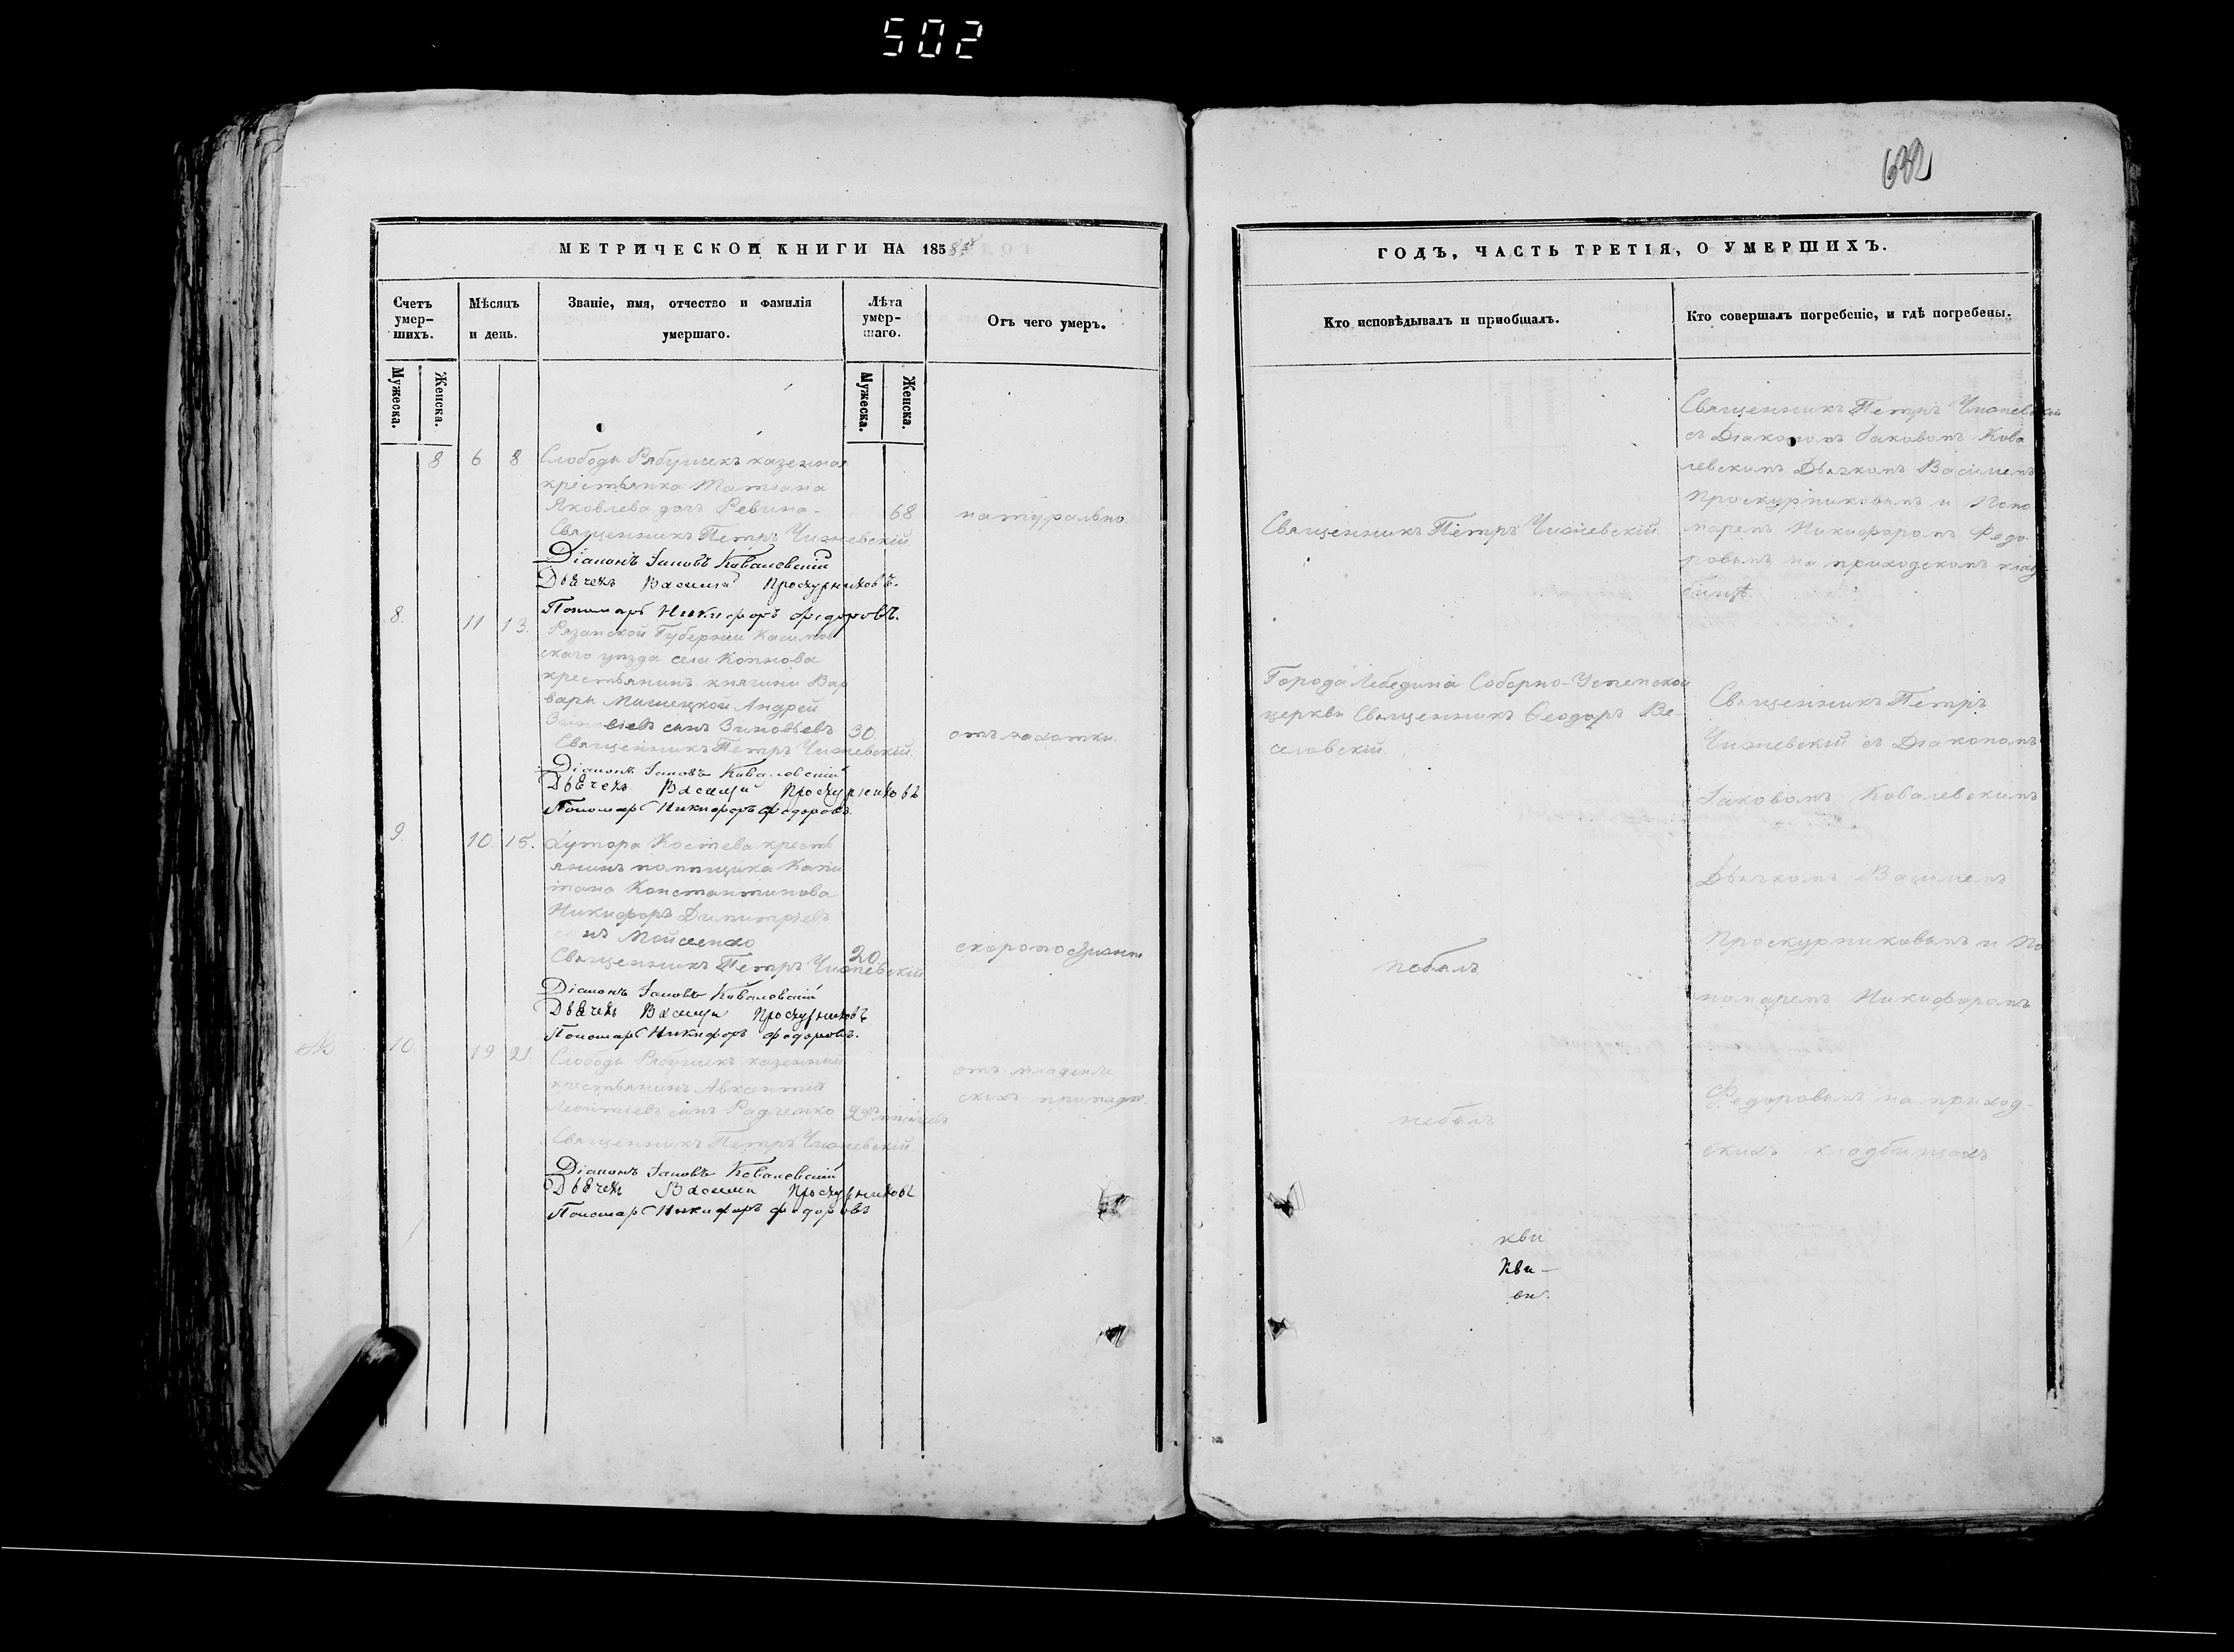 502
632
МЕТРИЧЕСКОЙ КНИГИ НА 1858й
ГОДЪ, ЧАСТЬ ТРЕТІЯ, О УМЕРШИХЪ.
Счетъ умер-
шихъ.
Мѣсяцъ
и день.
Званіе, имя, отчество и фамилія
умершаго.
Лѣта
умер-
шаго.
Отъ чего умеръ.
Кто исповѣдывалъ и пріобщалъ.
Кто совершалъ погребеніе, и гдѣ погребены.
Мужеска.
Женска.
Мужеска.
Женска.
8 6 8 Слободы Рябушекъ казенная
крестьянка Татіана
Яковлева дочь Ревина 68 натурально
Священникъ Петръ Чижевскій
Діаконъ Іаковъ Ковалевскій
Дьячекъ Василій Проскурниковъ.
Пономарь Никифоръ Федоровъ.
Священникъ Петръ Чижевскій
Священникъ Петръ Чижевскій
съ Діакономъ Іаковомъ Кова
левскимъ Дьячкомъ Василіемъ
Проскурниковымъ и Поно
маремъ Никифоромъ Федо
ровымъ на приходскомъ клад
бищѣ.
8. 11 13. Рязанской Губерніи Касимов
скаго уѣзда села Копнова
крестьянинъ княгини Вар
вары Мышецкой Андрей
Зиновіевъ сынъ Зиновьевъ 30. отъ чахотки.
Священникъ Петръ Чижевскій.
Діаконъ Іаковъ Ковалевскій
Дьячекъ Василій Проскурниковъ
Пономарь Никифоръ Федоровъ.
Города Лебедина Соборно-Успенской
церкви Священникъ Ѳеодоръ Ве-
селовскій.
9. 10. 15. Хутора Костева кресть
янинъ помѣщика Капи
тана Константинова
Никифоръ Димитріевъ
сынъ Мойсеенко 20. скоропостижно
Священникъ Петръ Чижевскій
Діаконъ Іаковъ Ковалевскій
Дьячекъ Василій Проскурниковъ
Пономарь Никифоръ Федоровъ.
небылъ
10. 19 21. Слободы Рябушекъ казенный
крестьянинъ Авксентій
Леонтіевъ сынъ Радченко 2
отъ младенче
скихъ припадк.
Священникъ Петръ Чижевскій
Діаконъ Іаковъ Ковалевскій
Дьячекъ Василій Проскурниковъ
Пономарь Никифоръ Федоровъ
небылъ
Священникъ Петръ
Чижевскій съ Діакономъ
Іаковомъ Ковалевскимъ
Дьячкомъ Василіемъ
Проскурниковымъ и По
номаремъ Никифоромъ
Федоровымъ на приход-
скихъ кладбищахъ
кви
Кви-